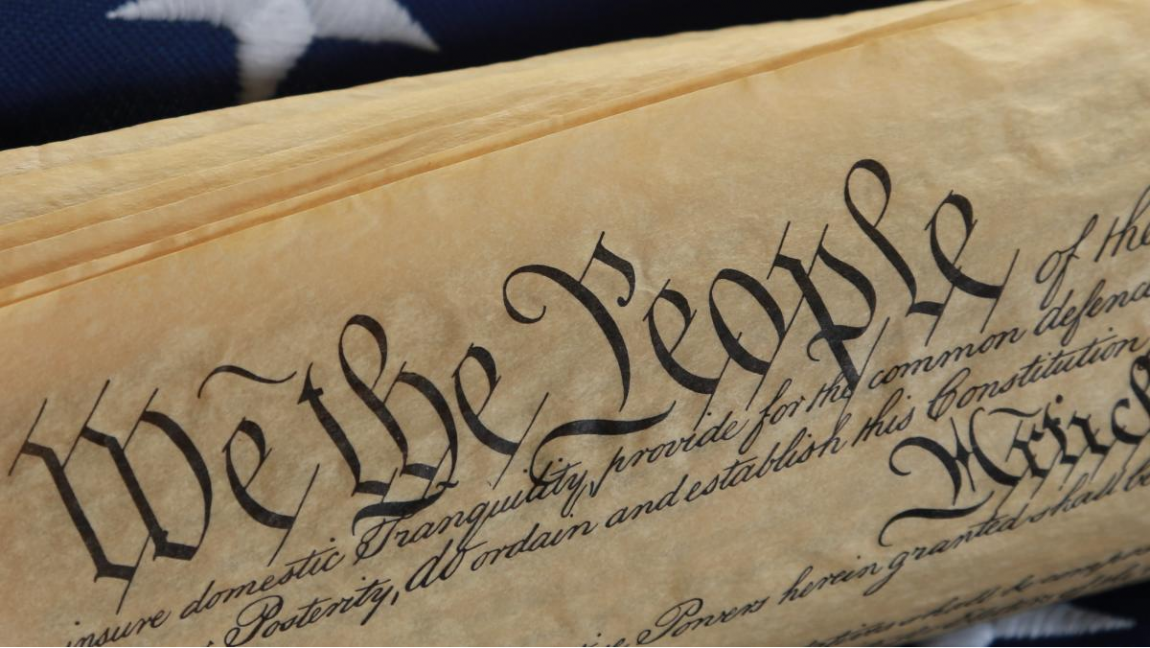 We the People of the
insure domestic Tranquility, provide for the common defence
Posterity, do ordain and establish this Constitution
Artic
Powers herein granted shall be